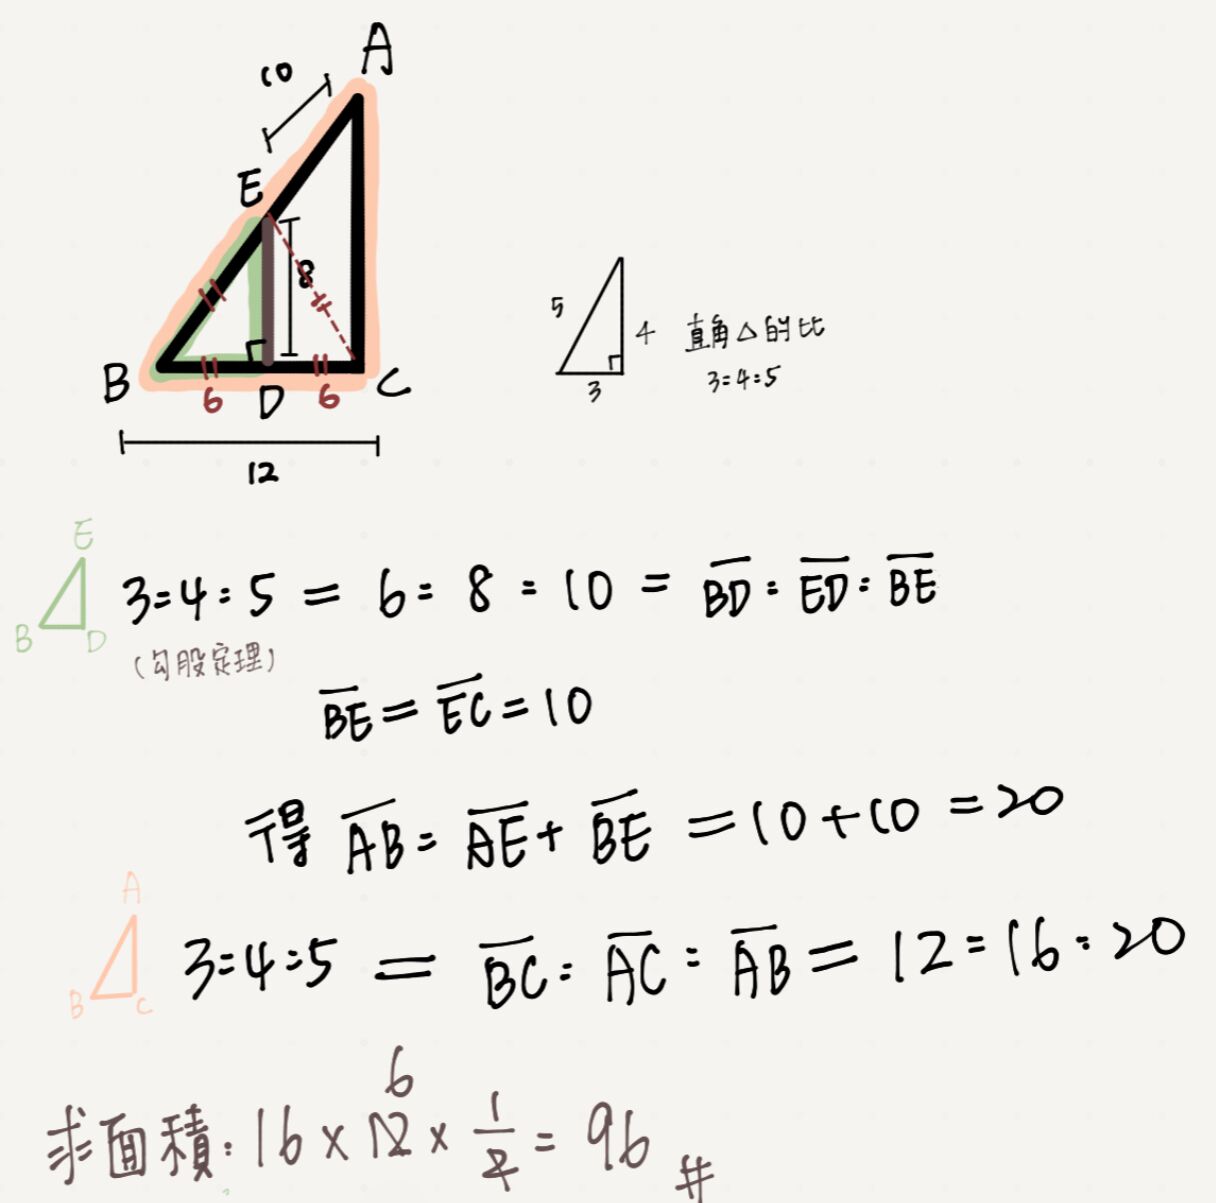 A
10
E
8
B
6
D
6
C
12
5
4
3
直角△的比
3:4:5
E
B
D
3:4:5 = 6:8:10 = BD:ED:BE
(勾股定理)
BE = EC = 10
得 AB = AE + BE = 10 + 10 = 20
A
B
C
3:4:5 = BC:AC:AB = 12:16:20
6
求面積:16 × 12 × 1/2 = 96 #